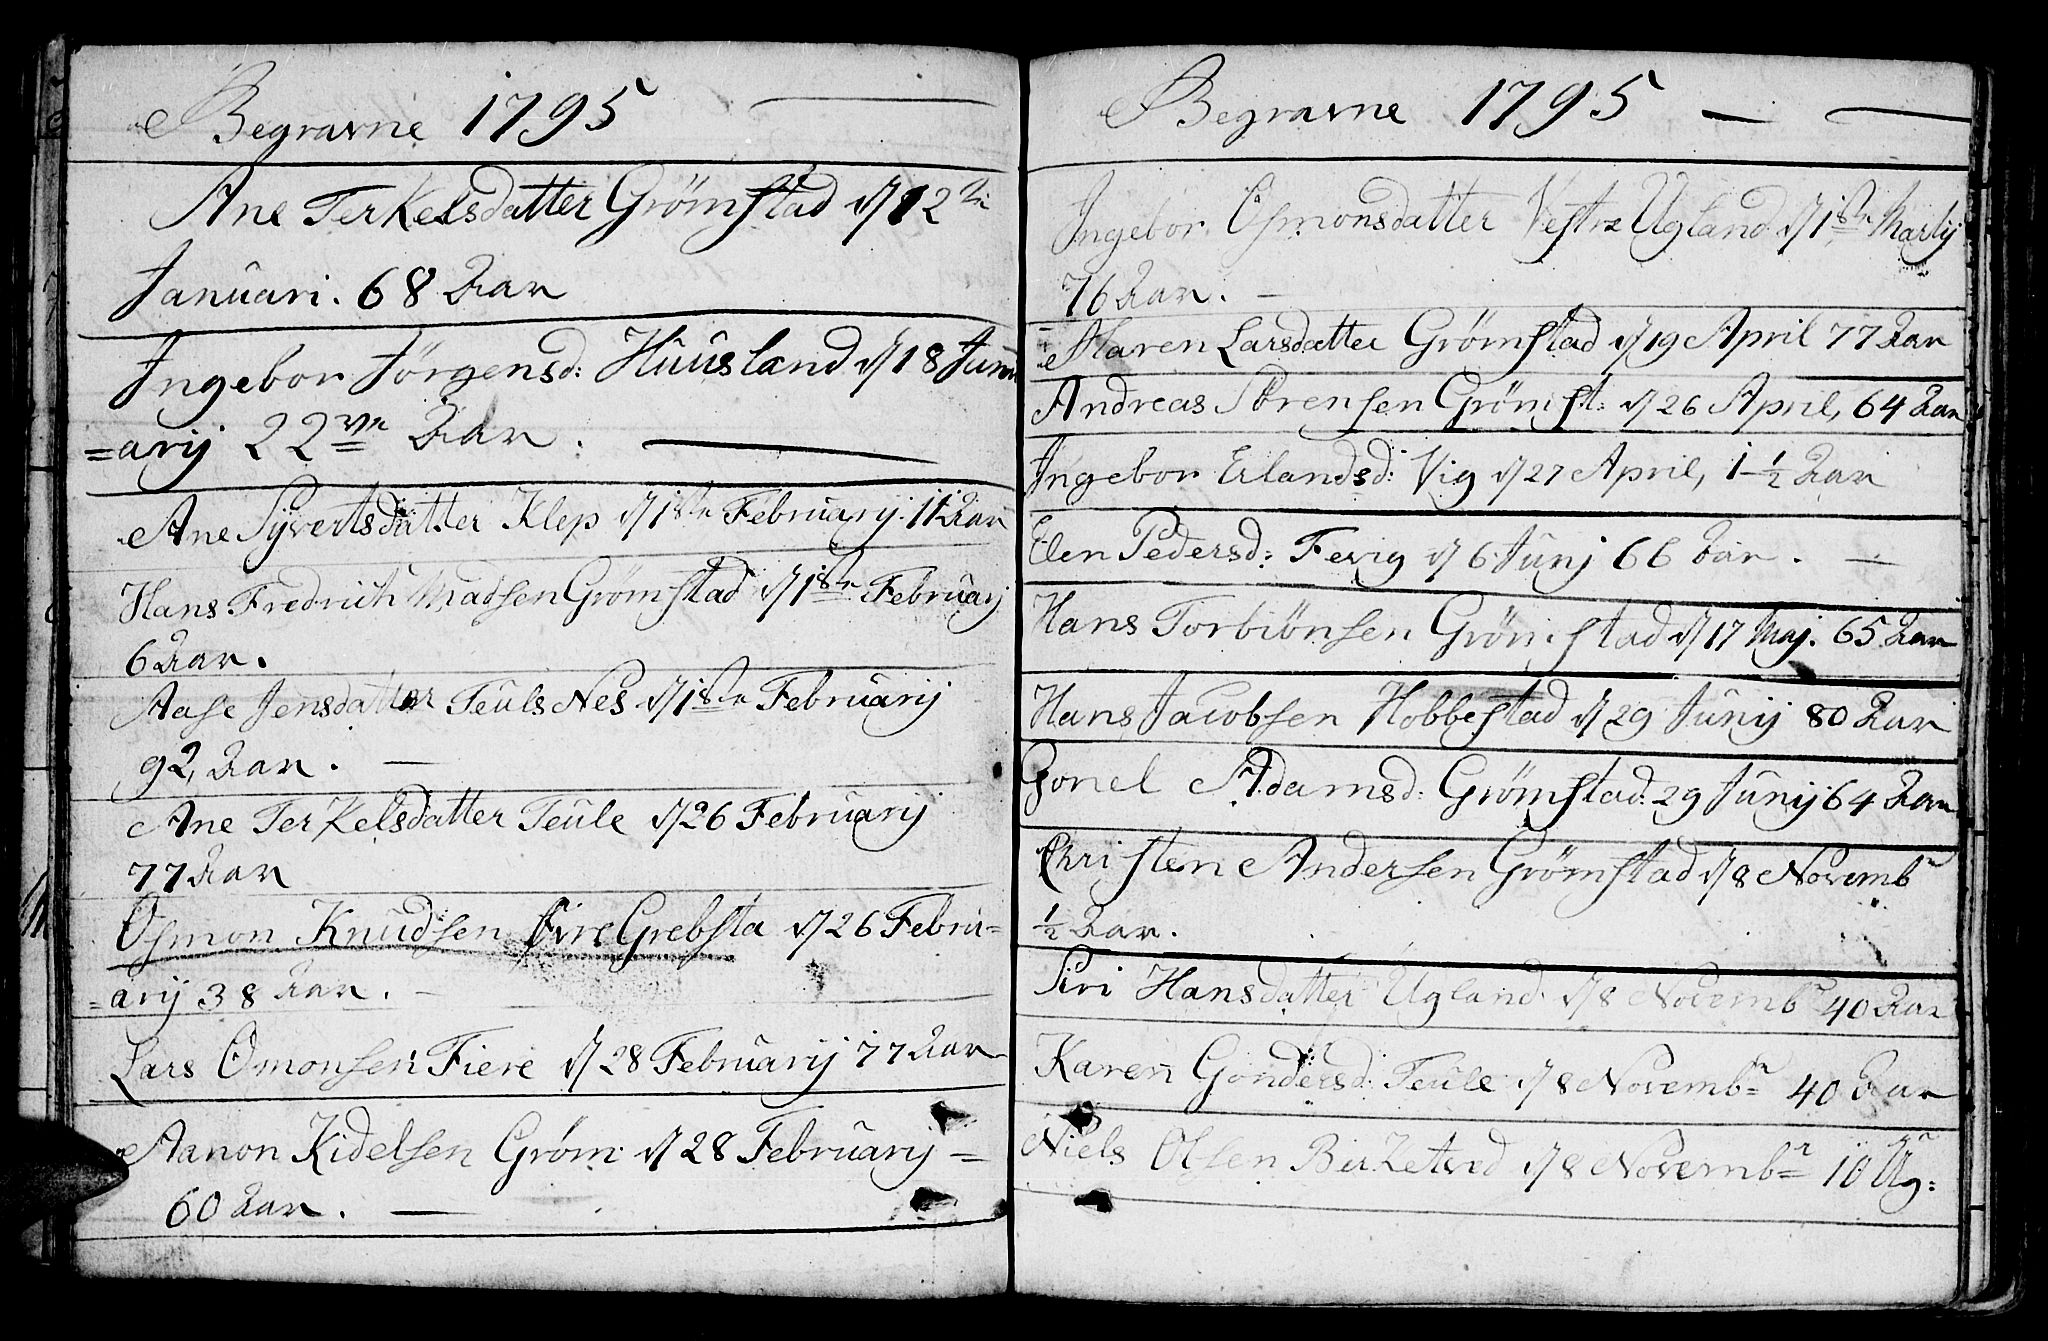 Begravne 1795
Ane Terkelsdatter Grömstad d/ 12te
Januari. 68 Aar
Ingebor Jörgensd: Huusland d/ 18 Janu
=arij 22ve Aar.
Ane Syvertsdatter Klep d/ 1ste Februarij. 11 Aar
Hans Fredrich Madsen Grömstad d/ 1ste Februarj
6 Aar.
Aase Jensdatter Teuls Nes d/ 1ste Februarij
92, Aar.
Ane Terkelsdatter Teule d/ 26 Februarij
77 Aar
Osmon Knudsen Øvre Grebsta d/ 26 Febru=
=arij 38 Aar.
Lars Omonsen Fiere d/ 28 Februarij 77 Aar
Aanon Kidelsen Gröm: d/ 28 Februarij =
60 Aar.
Begravne 1795
Ingebor Osmonsdatter Vestre Ugland d/ 1ste Martij
76 Aar.
Maren Larsdatter Grömstad d/ 19 April 77 Aar
Andreas Sörensen Grömst: d/ 26 April, 64 Aar
Ingebor Erlandsd: Vig d/ 27 April, 1 1/2 Aar
Elen Pedersd: Fevig d/ 6 Junj 66 Aar.
Hans Torbiönsen Grömstad d/ 17 Maj. 65 Aar
Hans Jacobsen Hobbestad d/ 29 Junij 80 Aar
Gonel Adamsd: Grömstad: 29 Junij 64 Aar
Christen Andersen Grömstad d/ 8 Novembr
1/2 Aar.
Siri Hansdatter Ugland d/ 8 Novembr 40 Aar
Karen Gondersd: Teule d/ 8 Novembr 40 Aar
Niels Olsen Birketved d/ 8 Novembr 10 Ug: